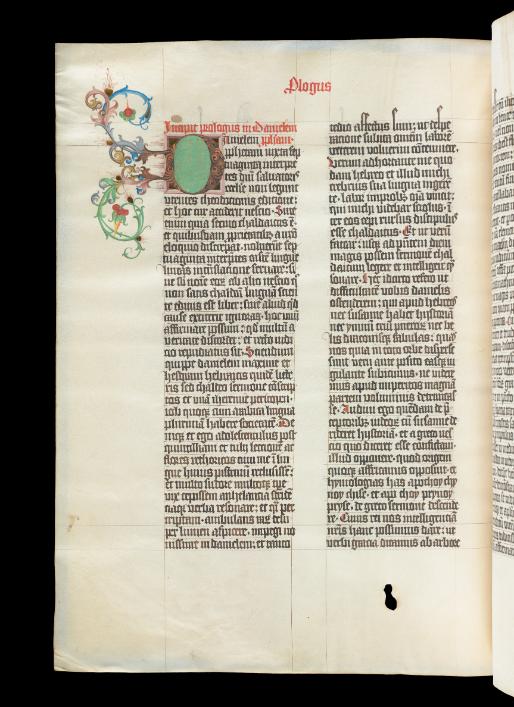 Plogus
Incipit prologus in Danielem
Danielem pphetam
pphetam iuxta sep
tuaginta interpre
tes dñi saluatoris
ecclie non legunt
utentes theodocionis editione:
et hoc cur acciderit nescio. Siue
enim quia sermo chaldaicus ē.
et quibusdam pprietatibz a nr̄o
eloquio discrepat. noluerūt sep
tuaginta interpretes easdē lingue
lineas in trāslacione seruare: si
ue sub noīe eorū ab alio nescio q̄
non satis chaldeā linguā sciēn
te editus est liber: siue aliud qd
cause extiterit ignorans. hoc unū
affirmare possum: qd multū a
veritate discordet: et recto iudi
cio repudiatus sit. Sciendum
quippe danielem maxime et
hesdram hebraicis quidē litte
ris sed chaldeo sermone cōscrip
tos et unā iheremie pericopen.
iob quoqz cum arabica lingua
plurimā habere societatē. De
niqz et ego adolescentulus post
quintiliani et tulii lectionē ac
flores rethoricos cum me ī lin
gue huius pistrinū reclusissē:
et multo sudore multoqz tpe
vix cepissem anhelancia striden
ciaqz verba resonare: et q̄si per
criptam ambulans rarū desu
per lumen aspicere. impegi no
uissime in danielem: et tanto
tedio affectus sum: ut despe
ratione subita omnem laborē
veterem voluerim cōtemnere.
Verum adhortante me quo
dam hebreo et illud michi
crebrius sua lingua ingere
te. labor improbus oīa vincit:
qui michi videbar sciolus. ī
ter eos cepi rursus discipulus
esse chaldaicus. Et ut verū
fatear: usqz ad p̄sentem diem
magis possum sermonē chal
daicum legere et intelligere q̄
sonare. Hec idcirco refero ut
difficultatē vobis danielis
ostenderem: qui apud hebreos
nec susanne habet historiā
nec ymnū triū puerorz nec be
lis draconisqz fabulas: quas
nos quia in toto orbe disperse
sunt veru ante posito easqz iu
gulante subiecimus. ne videre
mur apud imperitos magnā
partem voluminis detruncas
se. Audiui ego quēdam de p̄
ceptoribz iudeoꝝ cū susanne de
rideret hystoriā. et a greco nes
cio quo diceret esse confictam:
illud opponere. quod origeni
quoqz affricanus opposuit. e
thymologias has apo thoy schy
noy chise. et apo thoy prynoy
pryse. de greco sermone descende
re. Cuius rei nos intelligenciā
nr̄is hanc possumus dare: ut
verbi gratia dicamus ab arbore